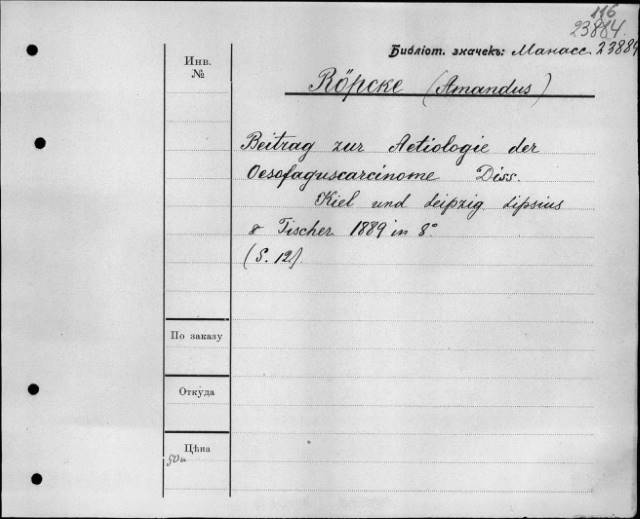 116
23884.
Библіот. значекъ: Манасс. 23884
Инв.
№
Röpcke (Amandus)
Beitrag zur Aetiologie der
Oesofaguscarcinome Diss.
Kiel und Leipzig Lipsius
& Tischer 1889 in 8°
(S. 12).
По заказу
Откуда
Цѣна